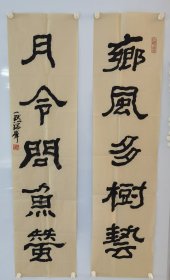 鄉風多樹藝
月令問魚蟹